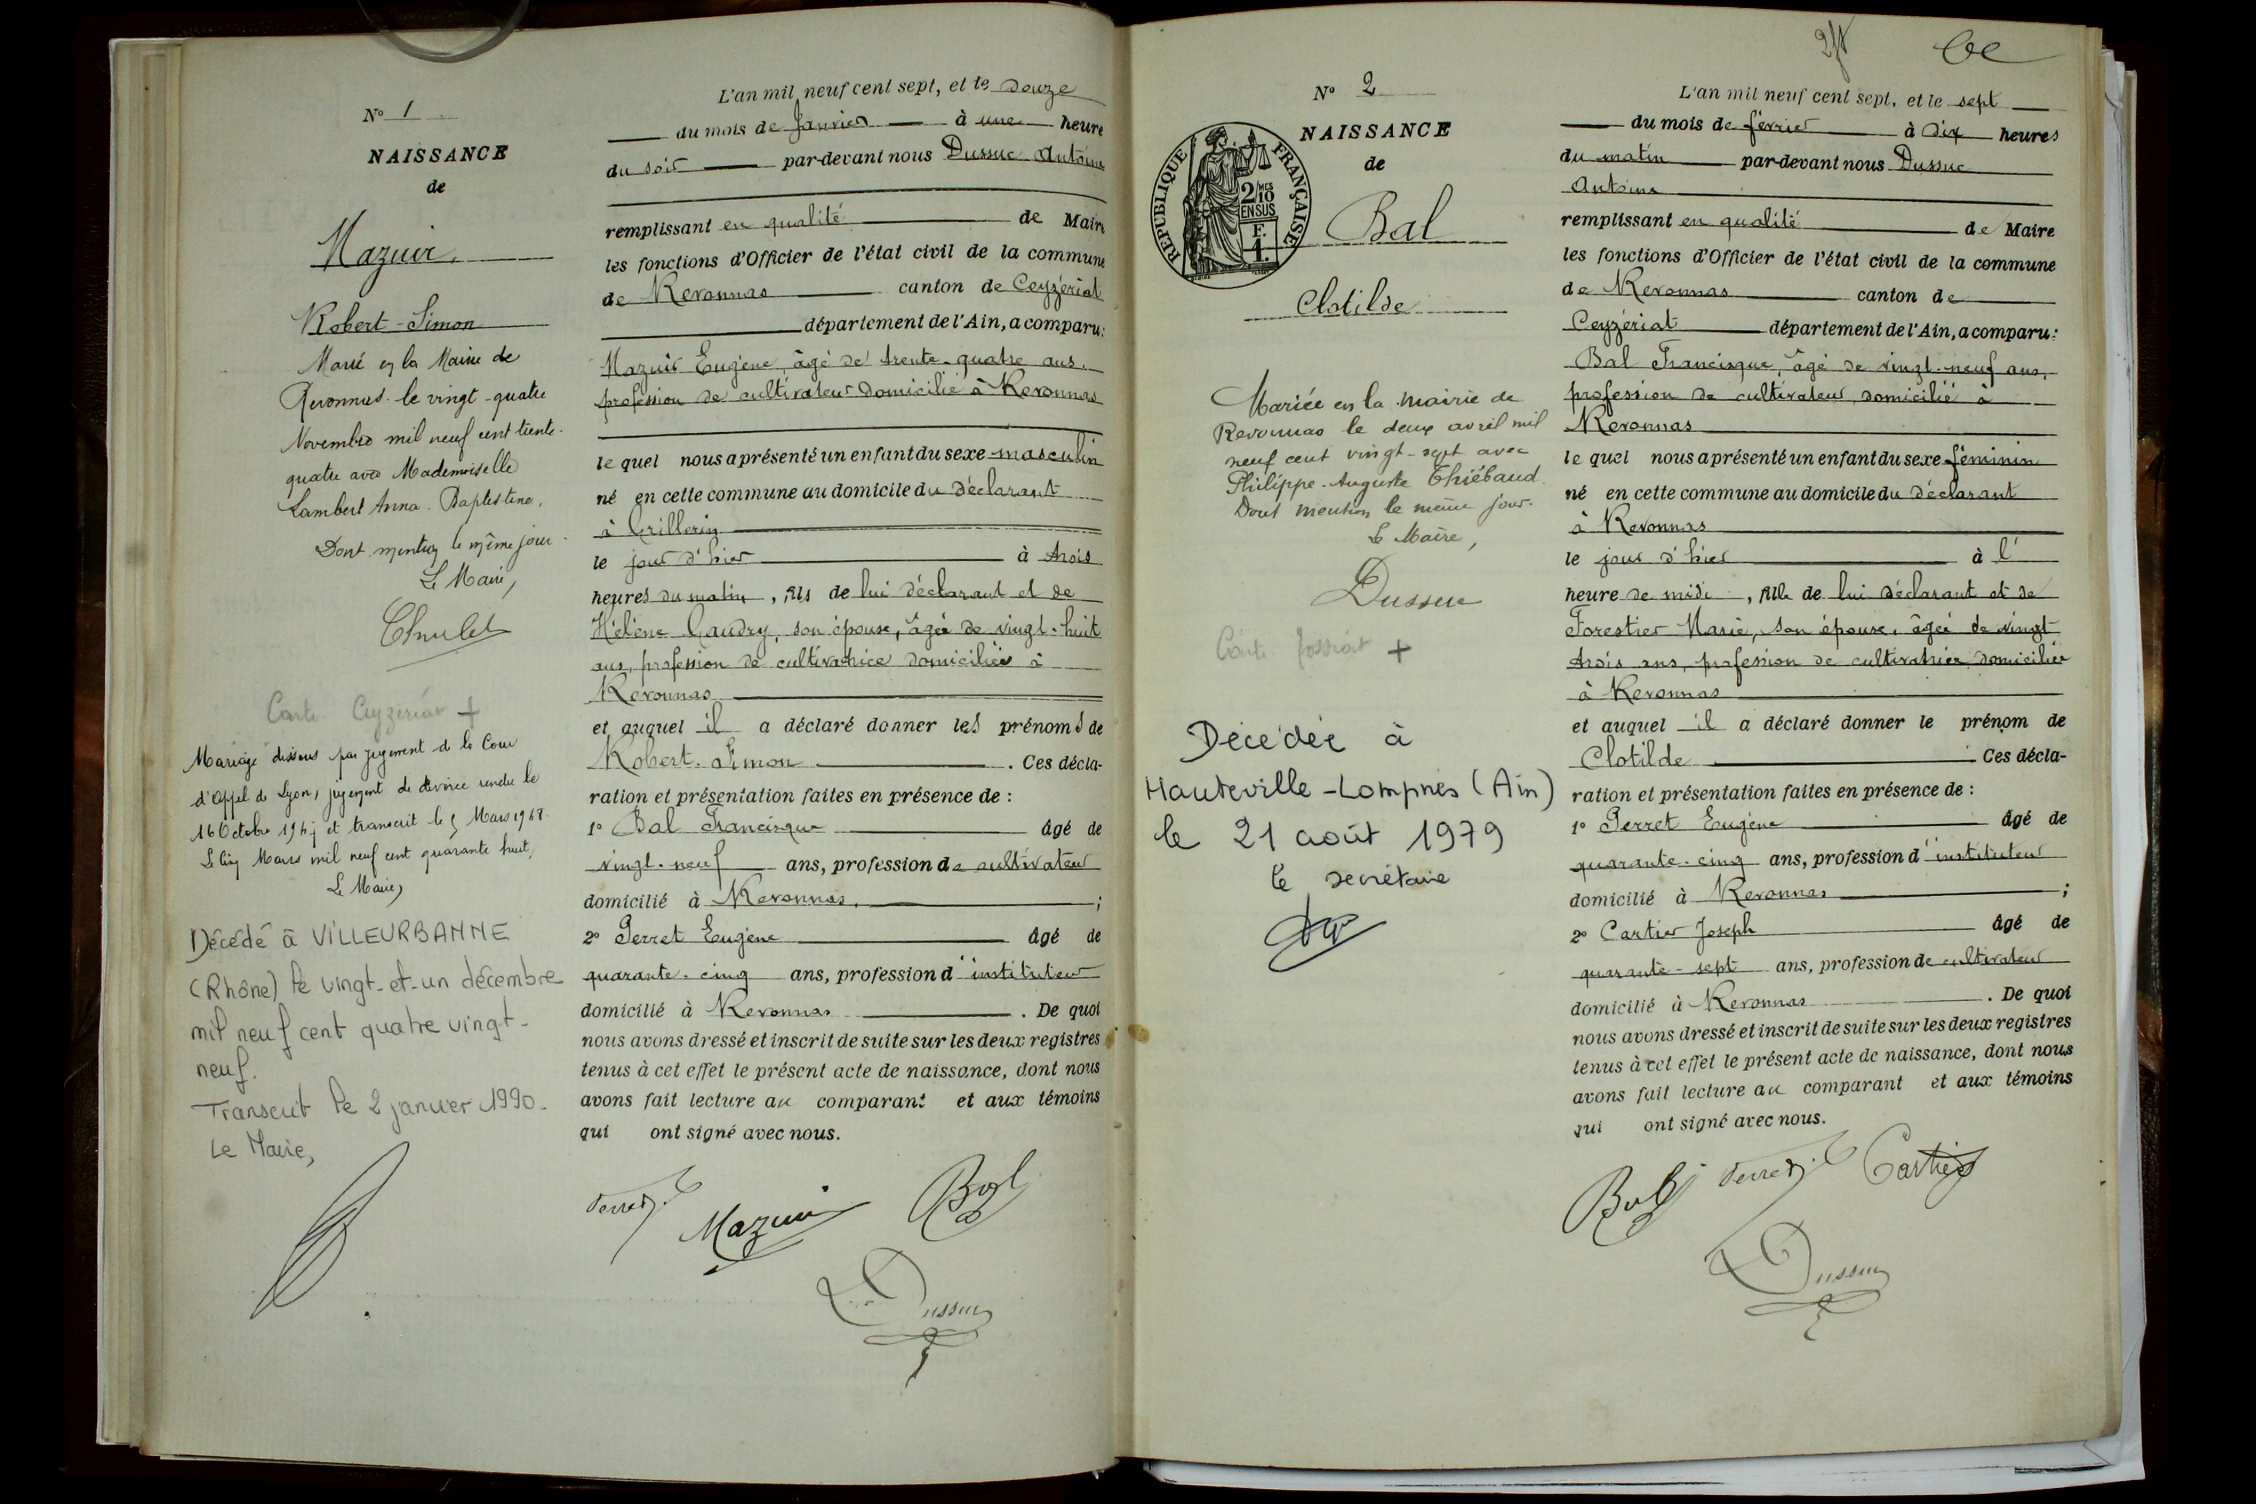 N° 1
NAISSANCE
de
Mazuir
Robert-Simon
Marié en la Mairie de
Revonnas le vingt-quatre
Novembre mil neuf cent trente-
quatre avec Mademoiselle
Lambert Anna-Baptistine.
Dont mention le même jour.
Le Maire,
Carte Ceyzériat +
Mariage dissous par jugement de la Cour
d'Appel de Lyon, jugement de divorce rendu le
16 Octobre et transcrit le 5 Mars 1948.
Le cinq Mars mil neuf cent quarante huit,
Le Maire,
Décédé à VILLEURBANNE
(Rhône) le vingt-et-un décembre
mil neuf cent quatre vingt-
neuf.
Transcrit le 2 janvier 1990.
Le Maire,
L'an mil neuf cent sept, et le douze
du mois de Janvier à une heure
du soir par-devant nous Dussuc Antoine
remplissant en qualité de Maire
les fonctions d'Officier de l'état civil de la commune
de Revonnas canton de Ceyzériat
département de l'Ain, a comparu:
Mazuir Eugène, âgé de trente-quatre ans.
profession de cultivateur domicilié à Revonnas
le quel nous a présenté un enfant du sexe masculin
né en cette commune au domicile du déclarant
à
le jour d'hier à trois
heures du matin, fils de lui déclarant et de
Hélène Caudry, son épouse, âgée de vingt-huit
ans, profession de cultivatrice domiciliée à
Revonnas
et auquel il a déclaré donner les prénoms de
Robert-Simon. Ces décla-
ration et présentation faites en présence de :
1° Bal Francisque âgé de
vingt-neuf ans, profession de cultivateur
domicilié à Revonnas. ;
2° Perret Eugène âgé de
quarante-cinq ans, profession d'instituteur
domicilié à Revonnas. De quoi
nous avons dressé et inscrit de suite sur les deux registres
tenus à cet effet le présent acte de naissance, dont nous
avons fait lecture au comparant et aux témoins
qui ont signé avec nous.
Perret
Mazuir
Bal
Dussuc
N° 2
NAISSANCE
de
REPUBLIQUE FRANÇAISE
2/10 MES
EN SUS
F.
1.
Bal
Clotilde
Mariée en la mairie de
Revonnas le deux avril mil
neuf cent vingt-sept avec
Philippe-Auguste Thiébaud.
Dont mention le même jour.
Le Maire,
Dussuc
Carte +
Décédée à
Hauteville-Lompnes (Ain)
le 21 août 1979
le secrétaire
L'an mil neuf cent sept, et le sept
du mois de février à dix heures
du matin par-devant nous Dussuc
Antoine
remplissant en qualité de Maire
les fonctions d'Officier de l'état civil de la commune
de Revonnas canton de
Ceyzériat département de l'Ain, a comparu:
Bal Francisque, âgé de vingt-neuf ans,
profession de cultivateur, domicilié à
Revonnas
le quel nous a présenté un enfant du sexe féminin
né en cette commune au domicile du déclarant
à Revonnas
le jour d'hier à l'
heure de midi, fille de lui déclarant et de
Forestier Marie, son épouse, âgée de vingt
trois ans, profession de cultivatrice domiciliée
à Revonnas
et auquel il a déclaré donner le prénom de
Clotilde. Ces décla-
ration et présentation faites en présence de :
1° Perret Eugène âgé de
quarante-cinq ans, profession d'instituteur
domicilié à Revonnas ;
2° Cartier Joseph âgé de
quarante-sept ans, profession de cultivateur
domicilié à Revonnas. De quoi
nous avons dressé et inscrit de suite sur les deux registres
tenus à cet effet le présent acte de naissance, dont nous
avons fait lecture au comparant et aux témoins
qui ont signé avec nous.
Bal
Perret
Cartier
Dussuc